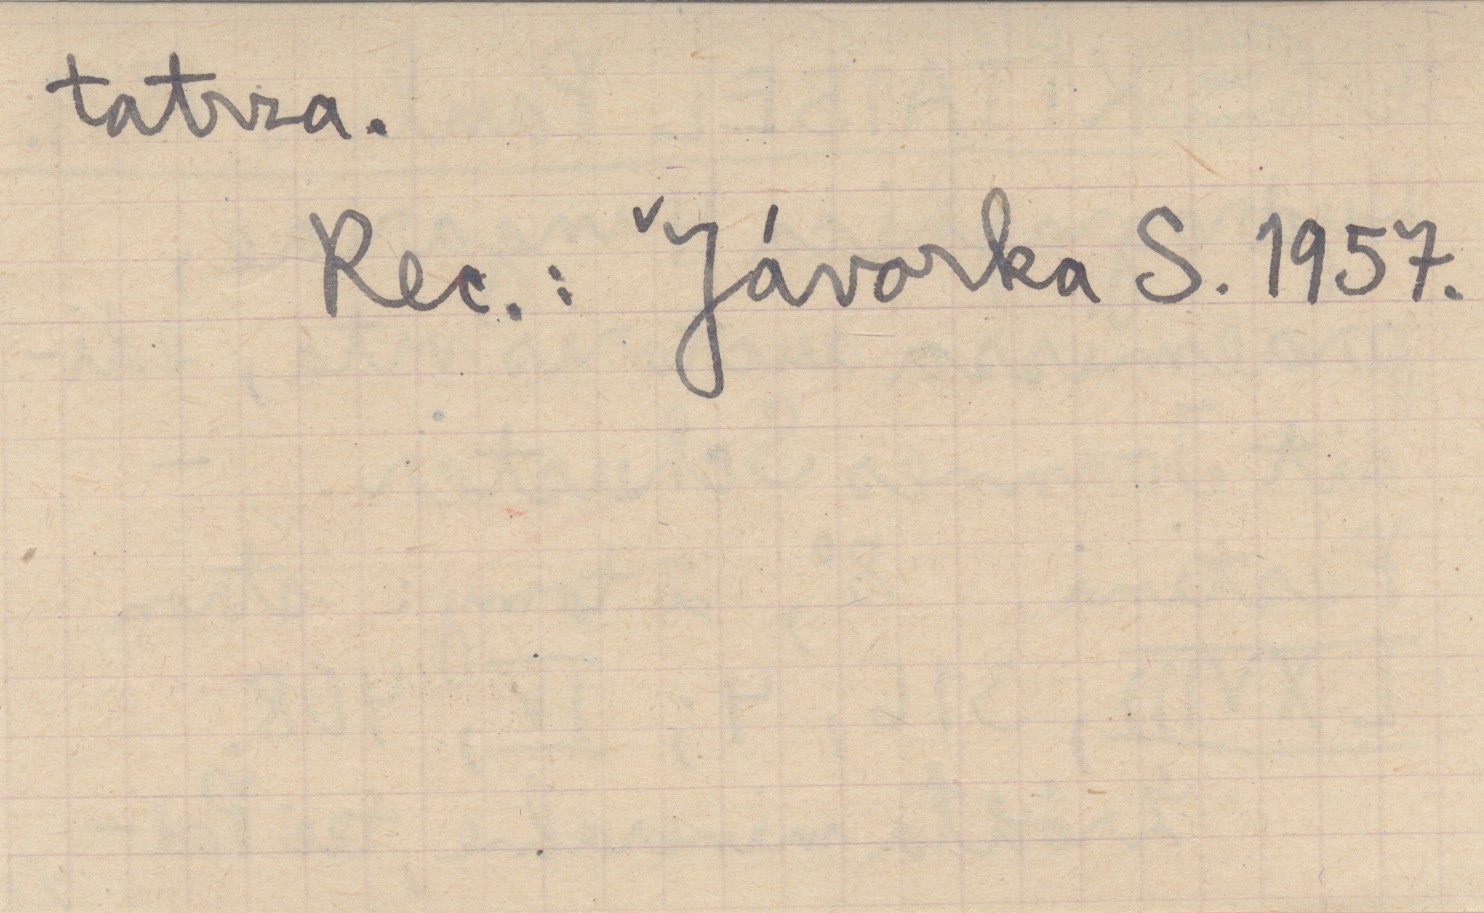 tatva.
Rec.: Jávorka S. 1957.